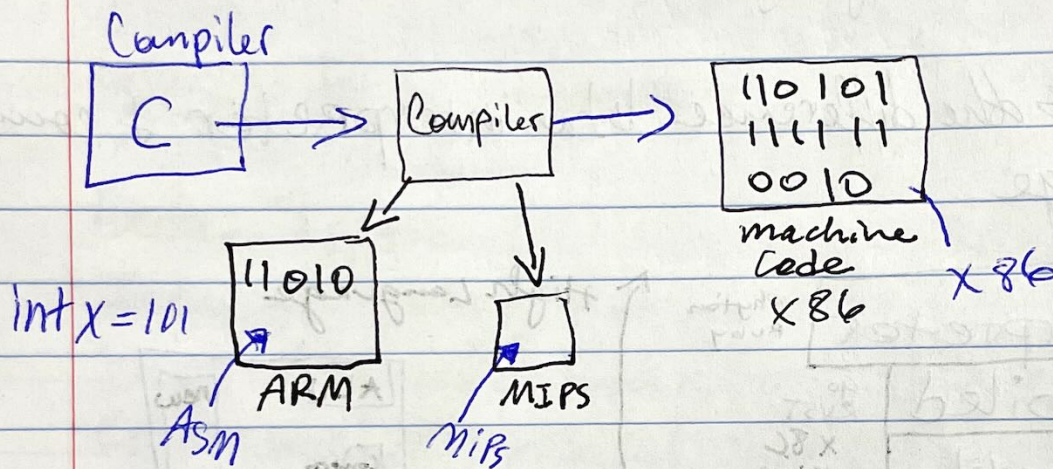 Compiler
C
Compiler
110101
111111
0010
machine
Code
x86
x86
11010
int x = 101
ARM
MIPS
ASM
MiPs